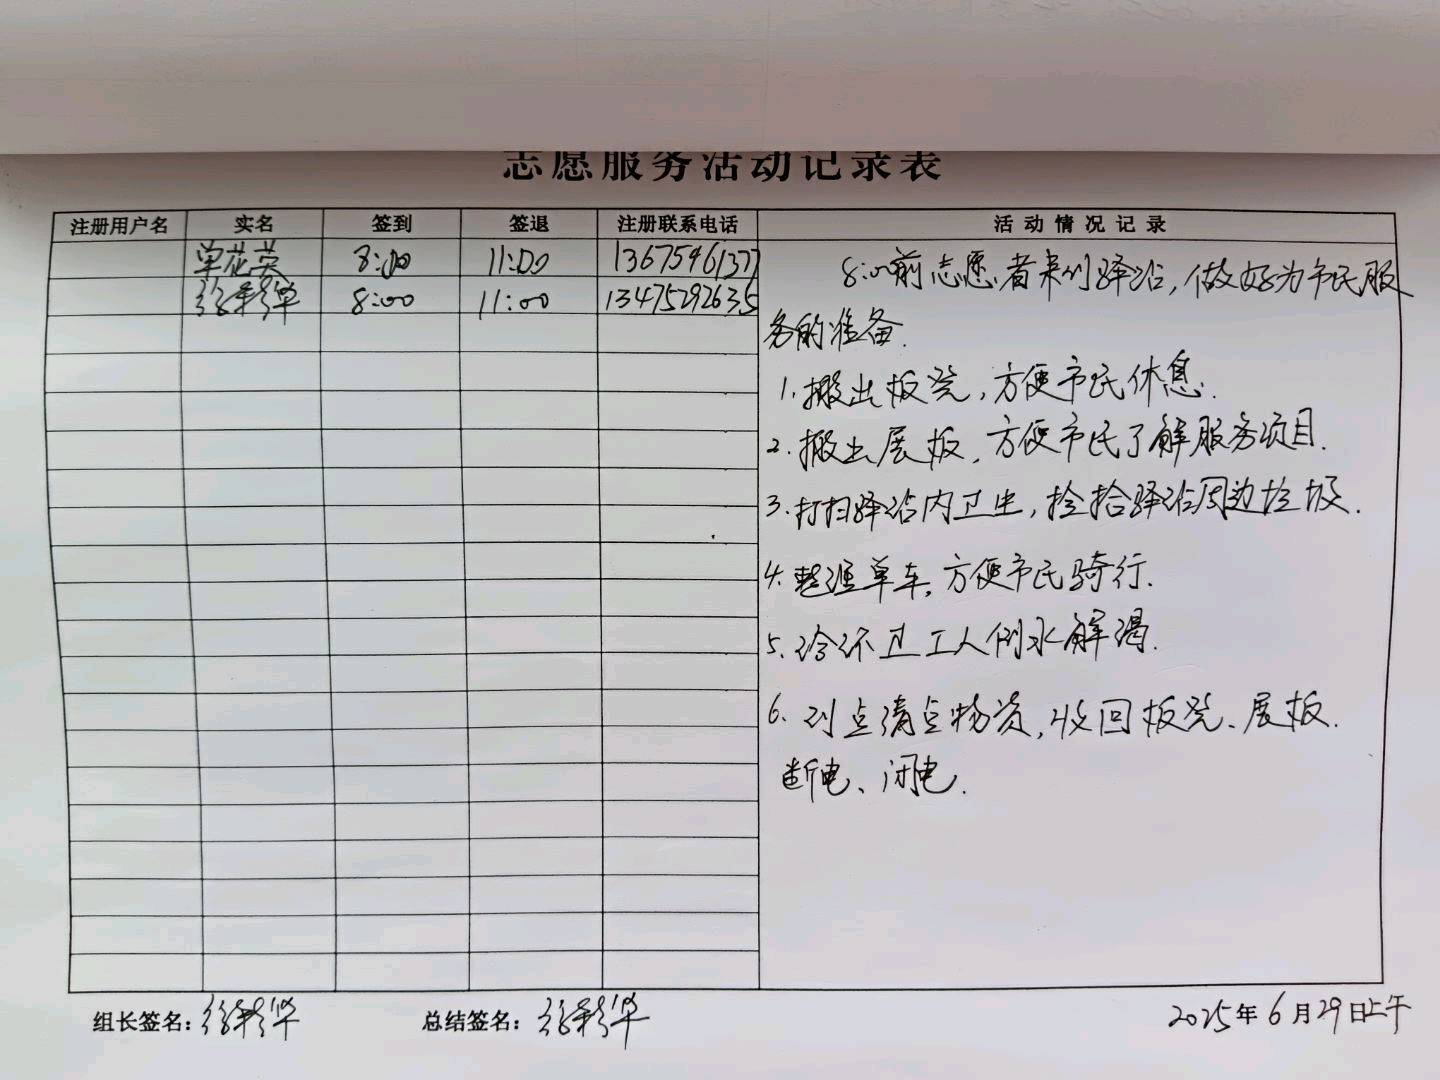 志愿服务活动记录表
注册用户名 实名 签到 签退 注册联系电话 活动情况记录
单花英 8:00 11:00 13675461377
徐彩华 8:00 11:00 13475292635
8:00前志愿者来到驿站,做好为市民服
务的准备.
1.搬出板凳,方便市民休息.
2.搬出展板,方便市民了解服务项目.
3.打扫驿站内卫生,捡拾驿站周边垃圾.
4.整理单车,方便市民骑行.
5.给环卫工人倒水解渴.
6.到点清点物资,收回板凳、展板.
断电、闭电.
组长签名:徐彩华 总结签名:徐彩华 2025年6月29日上午